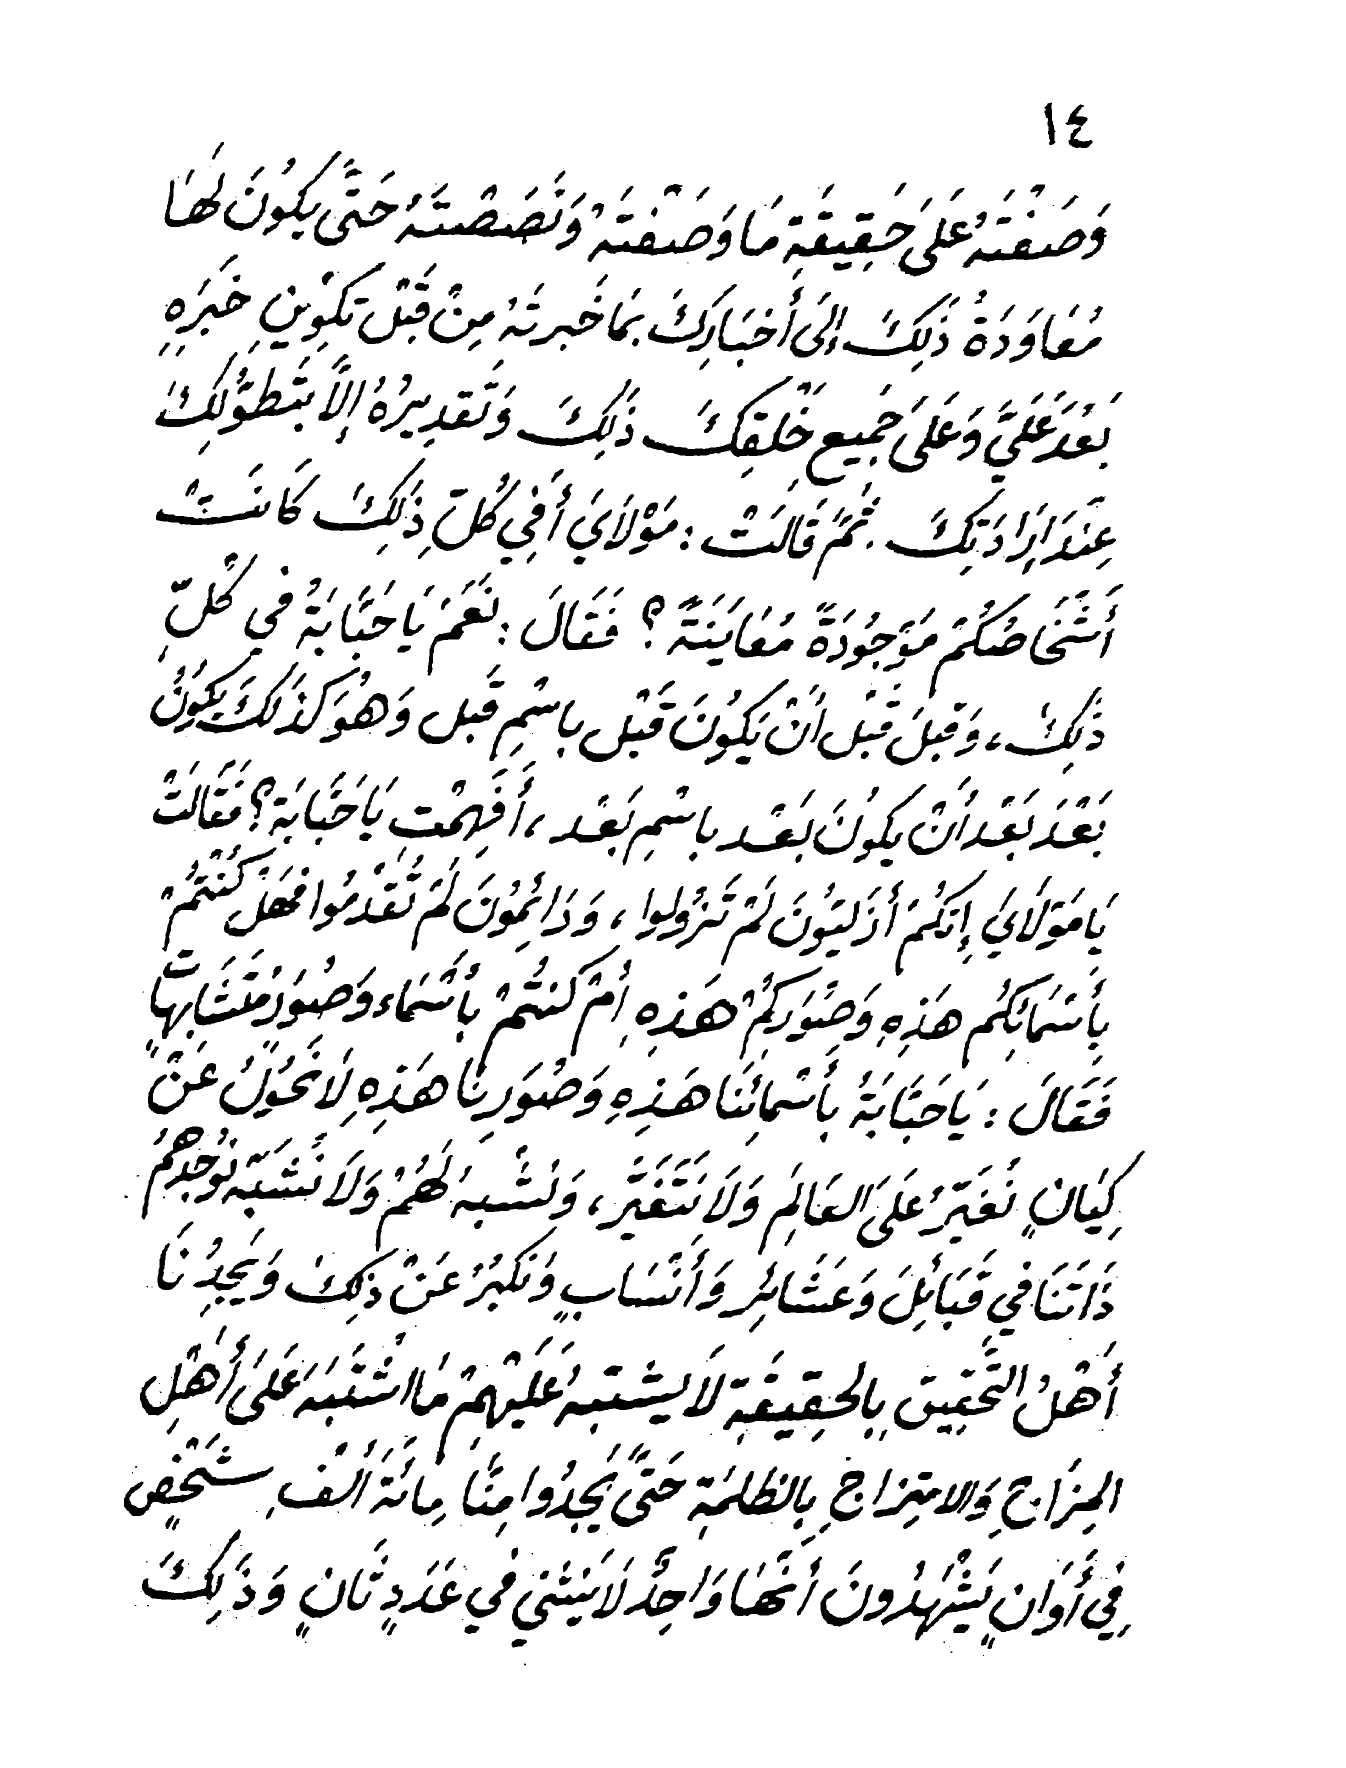 ١٤
وَصَفْتَهُ عَلَى حَقِيقَةِ مَا وَصَفْتَهُ وَنَصَصْتَهُ حَتَّى يَكُونَ لَهَا
مُعَاوَدَةُ ذَلِكَ إِلَى أَخْبَارِكَ بِمَا خَبرتَهُ مِنْ قَبْل تَكوِينِ خَبَرِهِ
بَعْدَ عَلَيَّ وَعَلَى جَمِيعِ خَلْقِكَ ذَلِكَ وَتَقدِيرُهُ إِلَّا بِتَطَوُّلِكَ
عِنْدَ إِرَادَتِكَ . ثُمَّ قَالَتْ : مَوْلَايَ أَفِي كُلِّ ذَلِكَ كَانَتْ
أَشْخَاصُكُمْ مَوْجُودَةً مُعَايَنَةً ؟ فَقَالَ : نَعَمْ يَا حَبَّابَةُ في كُلِّ
ذَلِكَ ، وَقَبلَ قَبْل أَنْ يَكُونَ قَبْل باسْمِ قَبل وَهُوَ كَذَلكَ يَكُونُ
بَعْدَ بَعْد أَنْ يكُونَ بَعْد باسْمِ بَعْد ، أَفَهِمْتِ يَا حَبَّابَة ؟ فَقَالَتْ
يَا مَوْلَايَ إِنكُمْ أَزَليُّونَ لَمْ تَزُولوا ، وَدَائِمُونَ لَمْ تُقْدَمُوا فهَلْ كُنْتُمْ
بِأَسْمَائِكُم هَذِهِ وَصُوَرِكُمْ هَذِهِ أمْ كنتُمْ بأَسْمَاء وَصُوَرٍ مُتَشَابِهَاتٍ
فَقَالَ : يَا حَبَّابَةُ بأَسْمائِنَا هَذِهِ وَصُوَرِنَا هَذِهِ لَا نَحُولُ عَنْ
كِيَانٍ نُغَيِّرُ عَلَى العَالَمِ وَلَا نَتَغَيَّر ، وَنُشْبهُ لَهُمْ وَلَا نُشْبَّه نُوجدهُمْ
ذَاتَنَا فِي قَبَائِلَ وَعَشَائِر وَأَنْسَابٍ وَنَكبُرُ عَنْ ذلِكَ وَيَجِدُنَا
أَهْلُ التَّحْقِيق بِالحَقِيقَةِ لَا يشتبِهُ عَلَيْهِمْ مَا اشْتَبَهَ عَلَى أَهْلِ
المِزَاجِ وَالامتِزاجِ بِالظلمَةِ حَتَّى يَجِدُوا مِنَّا مِائَةَ أَلْفِ شَخْصٍ
فِي أَوَانٍ يَشْهَدُونَ أَنَّهَا وَاحِدٌ لَا يَنثَني في عَدَدٍ ثَانٍ وَذَلِكَ